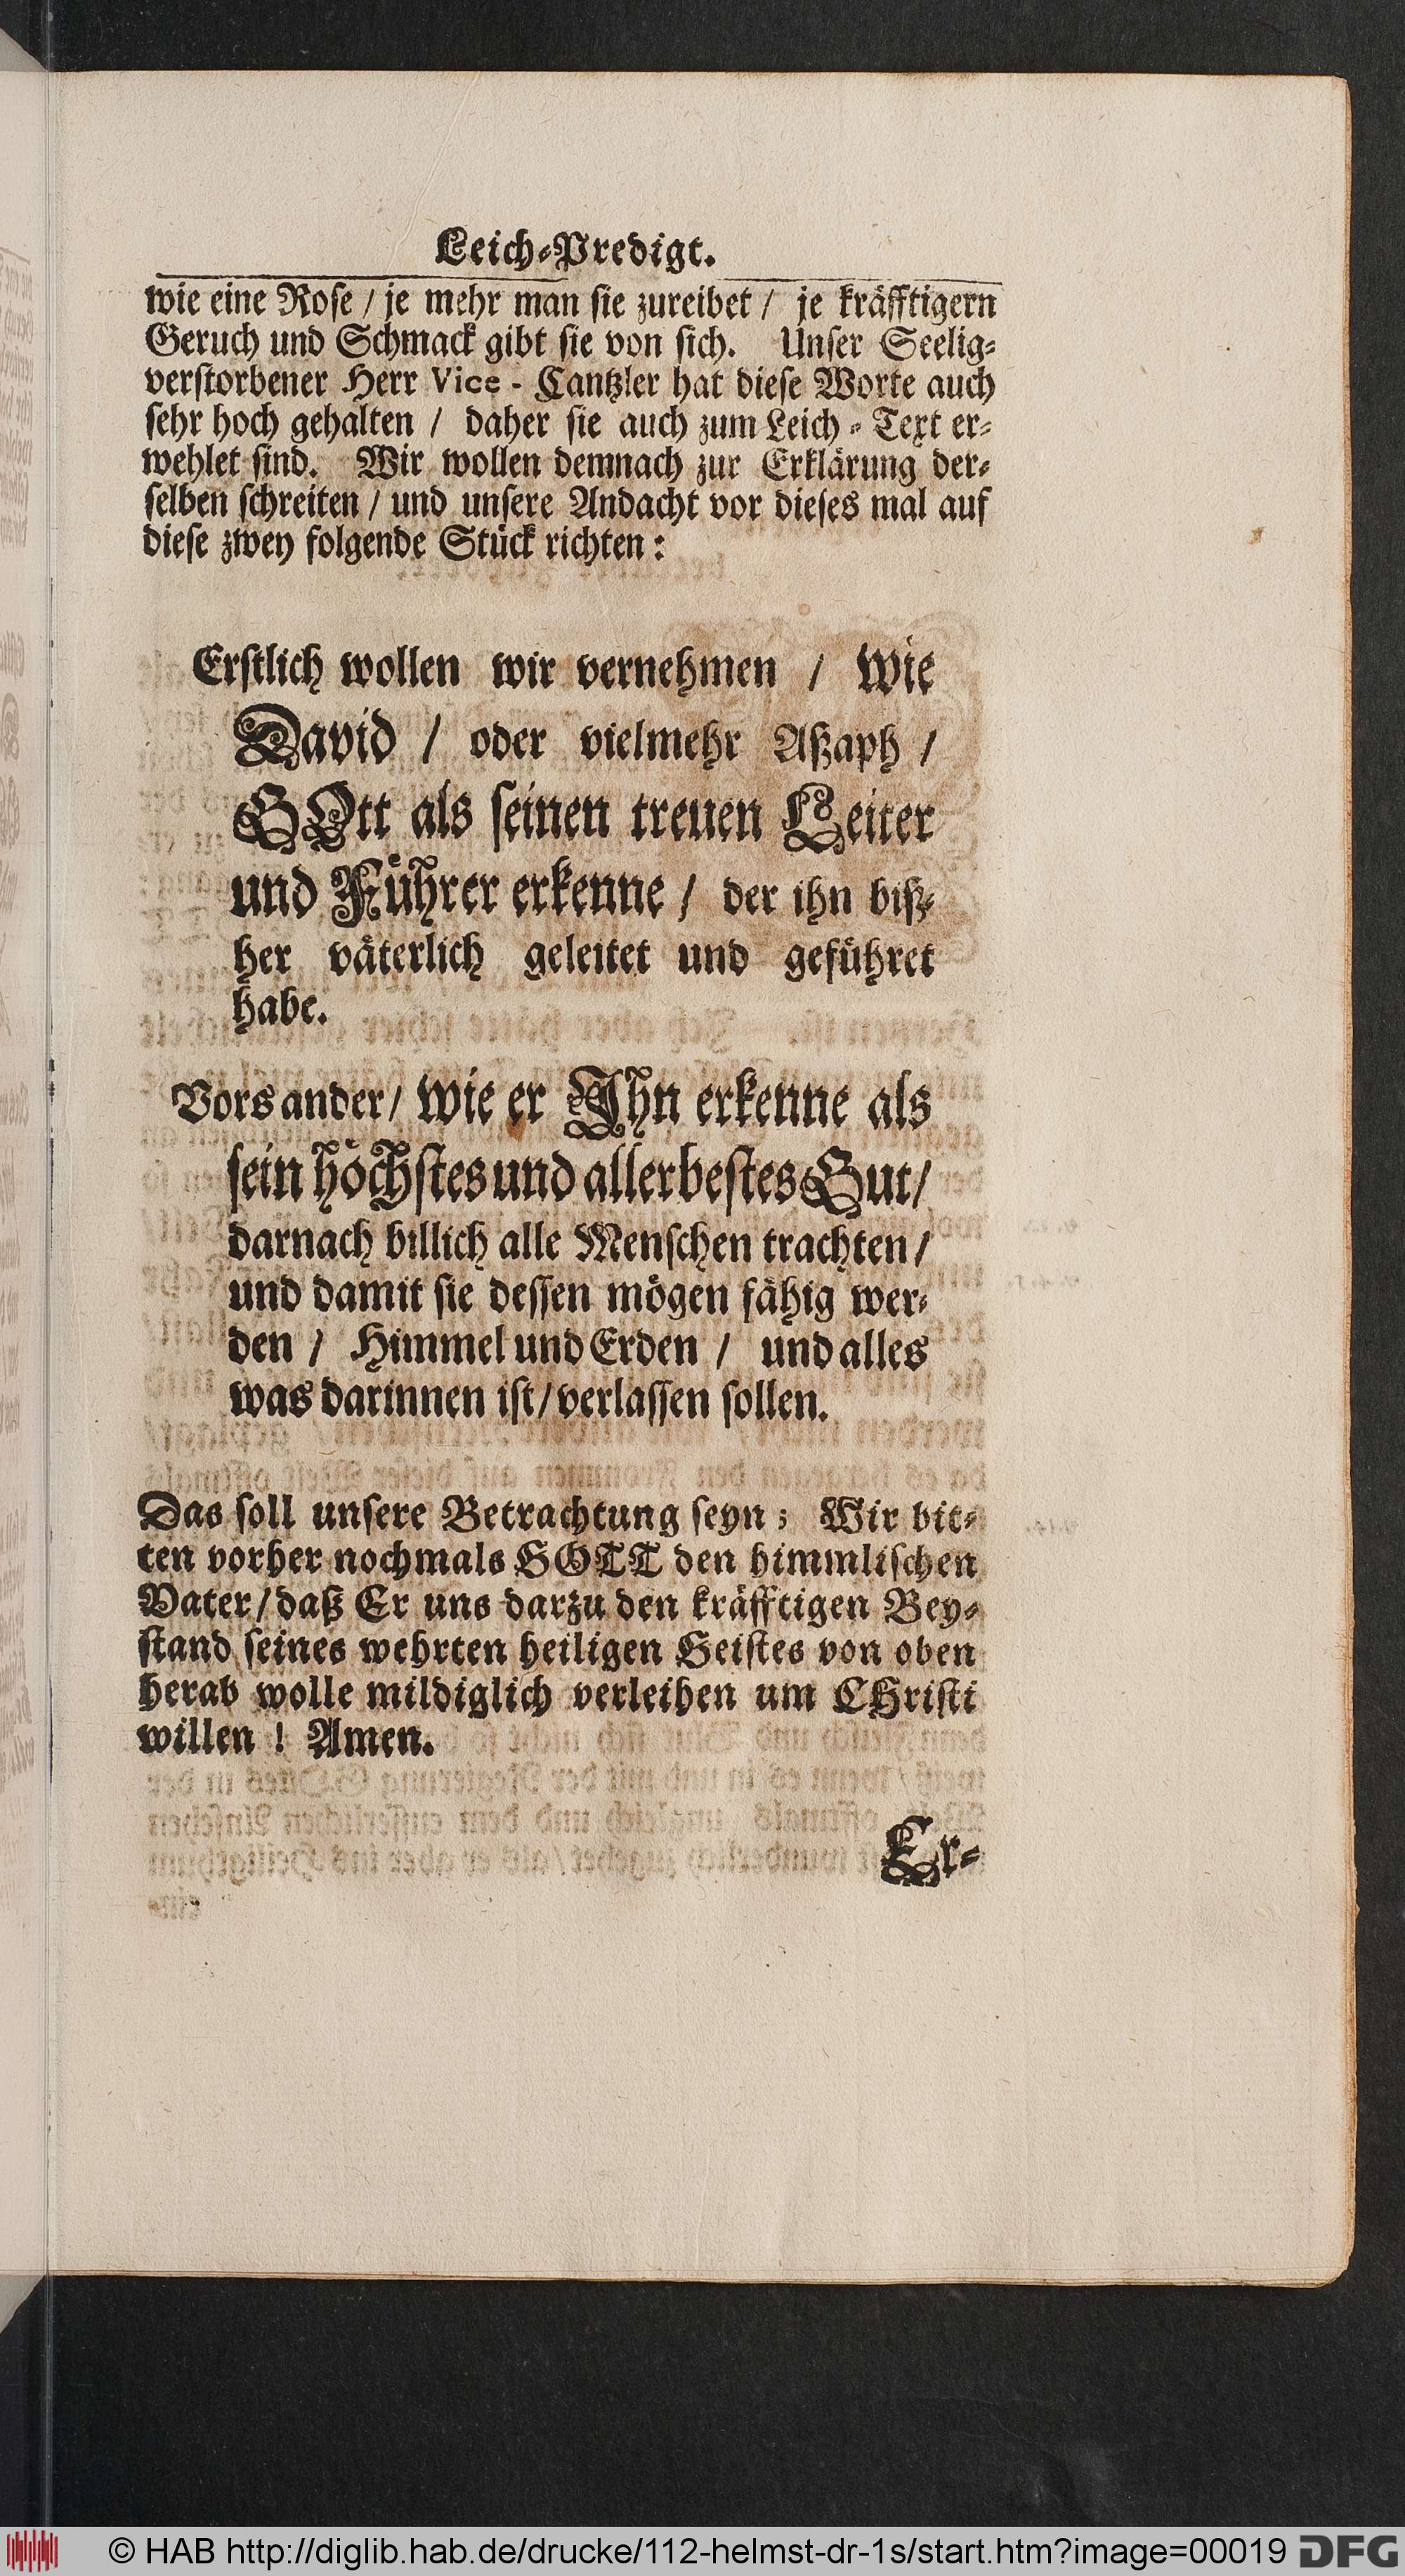 Leich-Predigt.
wie eine Rose / je mehr man sie zureibet / je kräfftigern
Geruch und Schmack gibt sie von sich. Unser Seelig-
verstorbener Herr Vice - Cantzler hat diese Worte auch
sehr hoch gehalten / daher sie auch zum Leich - Text er-
wehlet sind. Wir wollen demnach zur Erklärung der-
selben schreiten / und unsere Andacht vor dieses mal auf
diese zwey folgende Stück richten:
Erstlich wollen wir vernehmen / wie
David / oder vielmehr Aßaph /
GOtt als seinen treuen Leiter
und Führer erkenne / der ihn biß-
her väterlich geleitet und geführet
habe.
Vors ander / wie er Ihn erkenne als
sein höchstes und allerbestes Gut /
darnach billich alle Menschen trachten /
und damit sie dessen mögen fähig wer-
den / Himmel und Erden / und alles
was darinnen ist / verlassen sollen.
Das soll unsere Betrachtung seyn; Wir bit-
ten vorher nochmals GOTT den himmlischen
Vater / daß Er uns darzu den kräfftigen Bey-
stand seines wehrten heiligen Geistes von oben
herab wolle mildiglich verleihen um CHristi
willen ! Amen.
Er-
© HAB http://diglib.hab.de/drucke/112-helmst-dr-1s/start.htm?image=00019 DFG